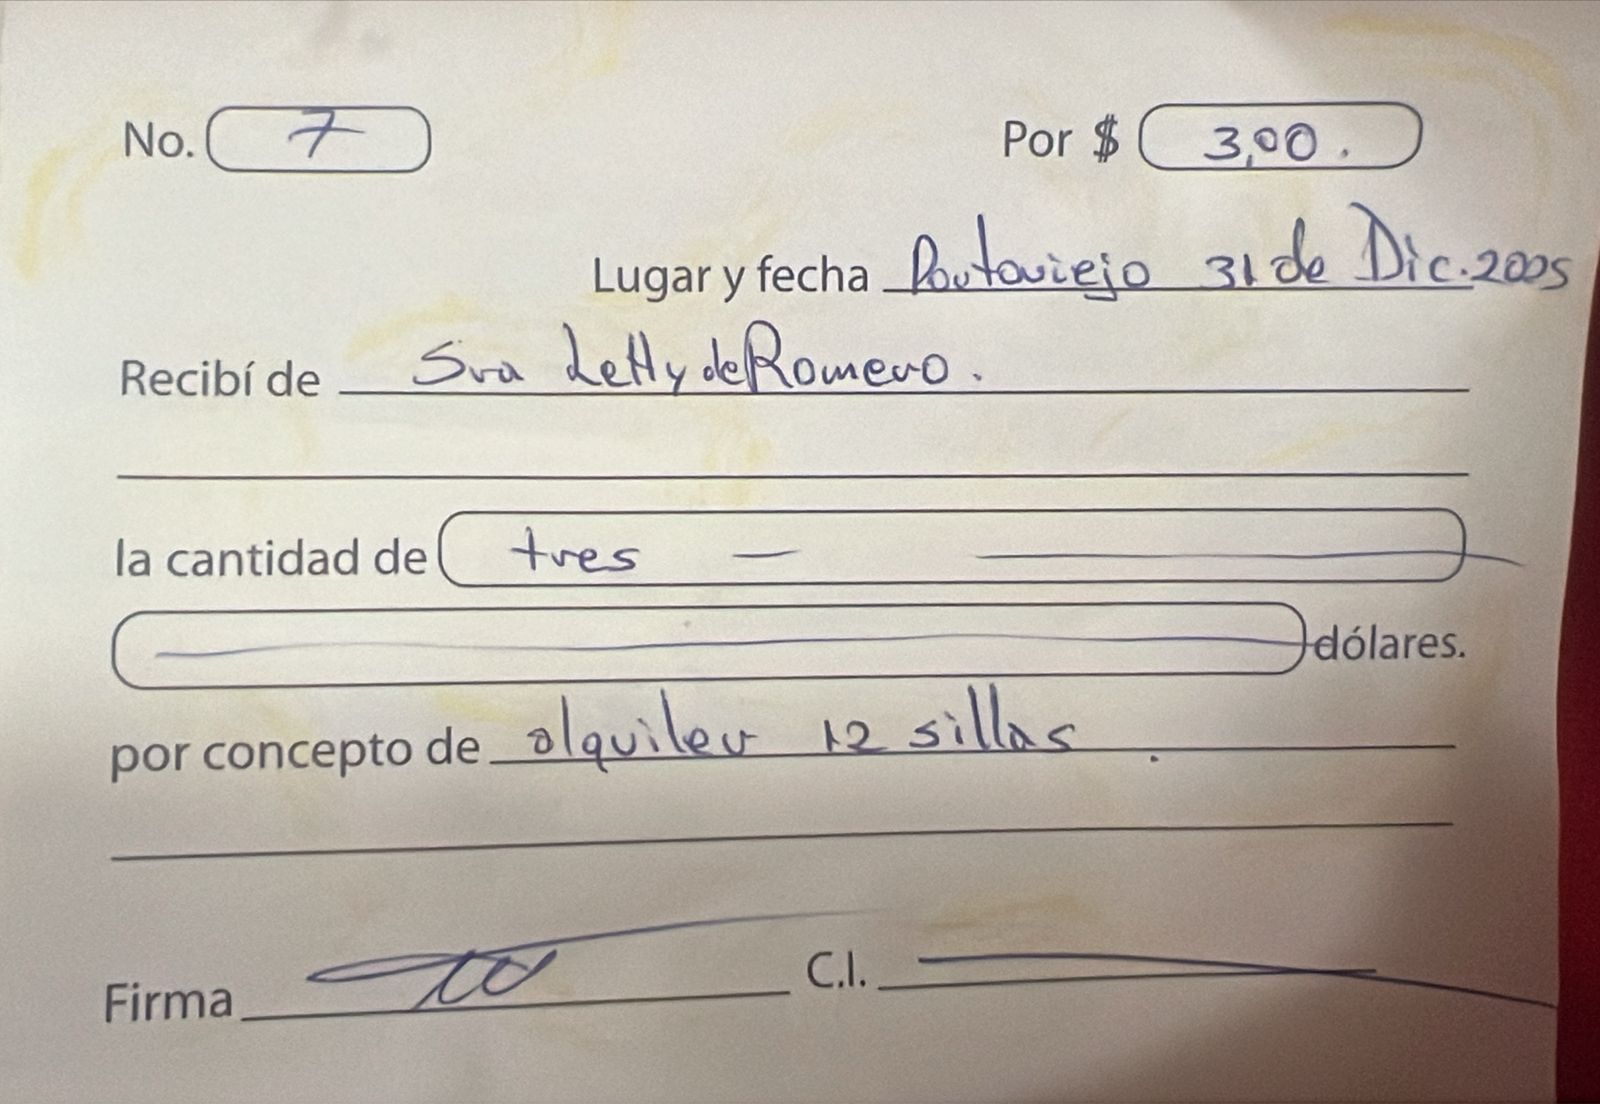 No. 7 Por $ 3,00.
Lugar y fecha Portoviejo 31 de Dic. 2005
Recibí de Sra Letty de Romero.
la cantidad de tres —
dólares.
por concepto de alquiler 12 sillas.
Firma C.I.